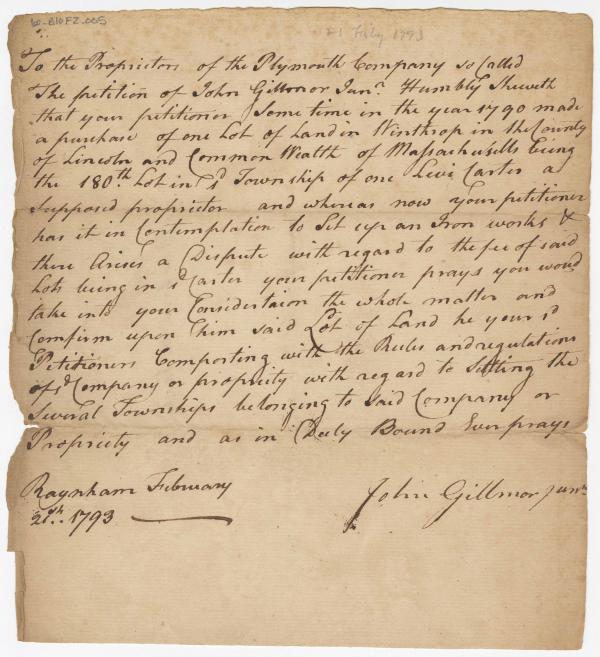 60-B10F2-005
21 Feby 1793
To the Proprietors of the Plymouth Company so Called
The petition of John Gillmor Junr. Humbly Sheweth
that your petitioner Some time in the year 1790 made
a purchase of one Lot of Land in Winthrop in the County
of Lincoln and Common Wealth of Massachusetts being
the 180th. Lot in sd Township of one Levi Carter a
Supposed proprietor and whereas now your petitioner
has it in Contemplation to Set up an Iron works &
there Arises a Dispute with regard to the fee of said
Lots being in sd Carter your petitioner prays you would
take into your Considertaion the whole matter and
Comfirm upon him said Lot of Land he your sd
Petitioners Comporting with the Rules and regulations
of sd Company or propriety with regard to Setling the
Several Townships belonging to said Company or
Propriety and as in Duty Bound Ever prays
Raynham February
21th. 1793
John Gillmor junr